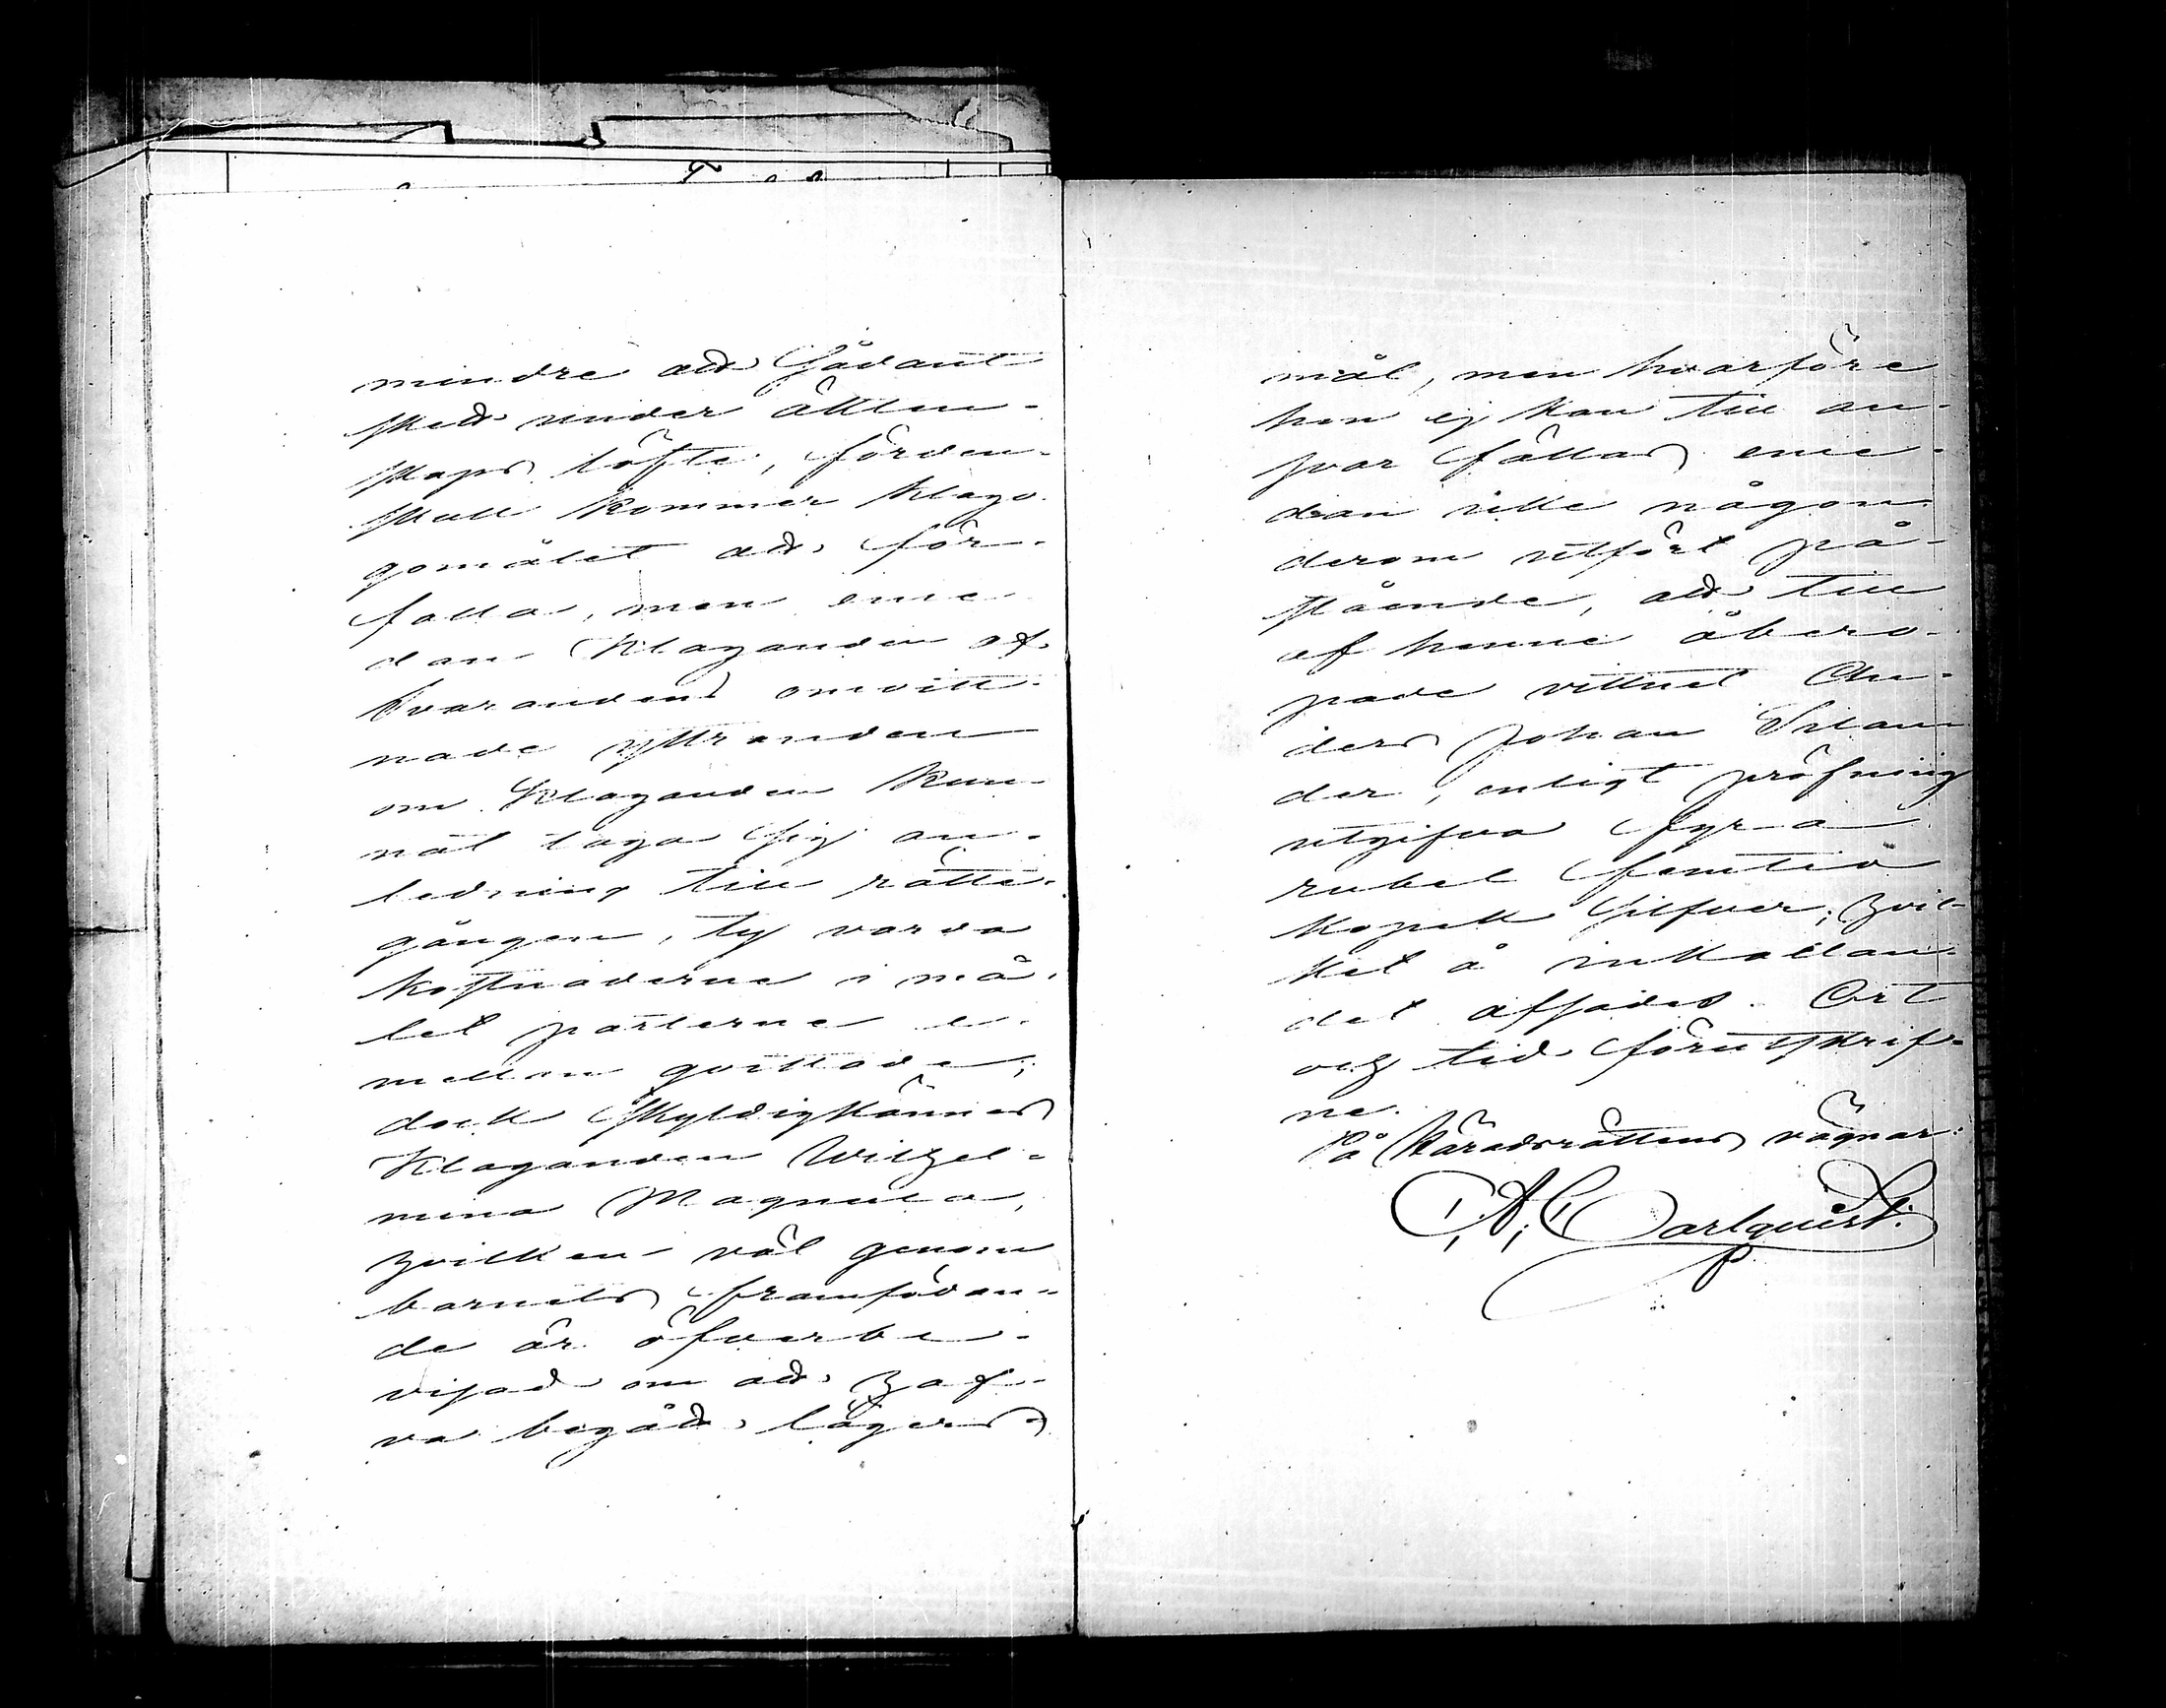 mindre att sådant
skett under äkten-
skaps löfte, förden-
skull kommer klago-
gomålet att för-
falla, men eme-
dan Klaganden af
Svarandens omvitt-
nade yttranden
om Klaganden kun-
nat taga sig an-
ledning till rätte-
gången, ty varda
kostnaderne i må-
let parterne e-
mellan qvittade;
dock skyldigkännes
Klaganden Wilhel-
mina Magnula,
hvilken väl genom
barnets framfödan-
de är öfverbe-
visad om att haf-
va begått lägers-
mål, men hvarföre
hon ej kan till an-
svar fällas eme-
dan icke någon
derom utfört på-
stående, att till
af henne åbero-
pade vittnet An-
ders Johan Srlan-
der, enligt pröfning
utgifva fyra
rubel femtio
kopek silfver; hvil-
ket å inkallan-
det afsades. Ort
och tid förutskrif-
ne.
På Häradsrättens vägnar:
C. A. Carlquist.